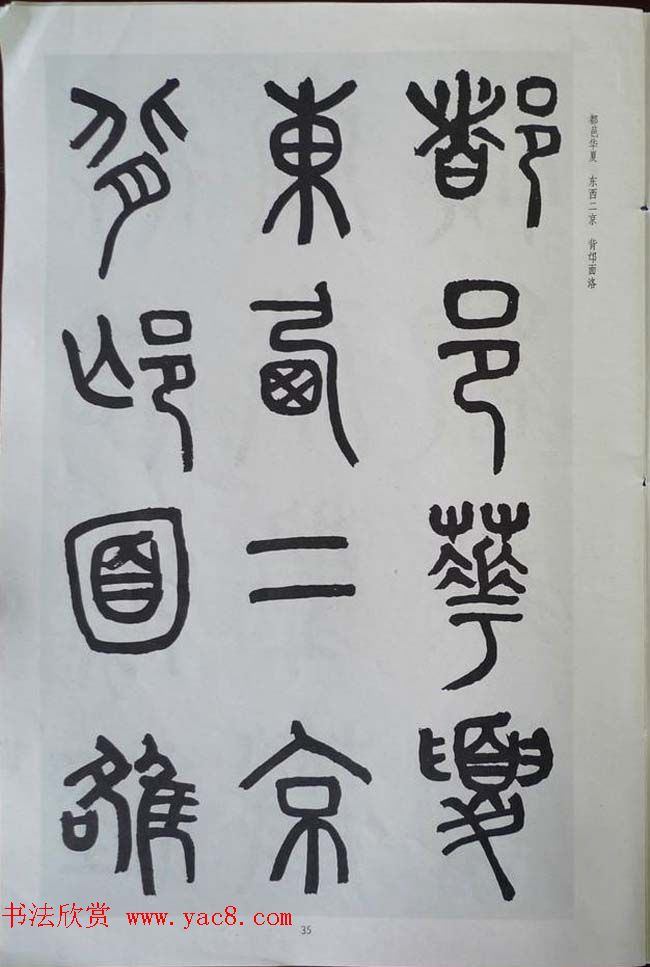 都邑华夏 东西二京 背邙面洛
都邑華夏
東西二京
背邙面雒
35
书法欣赏 www.yac8.com